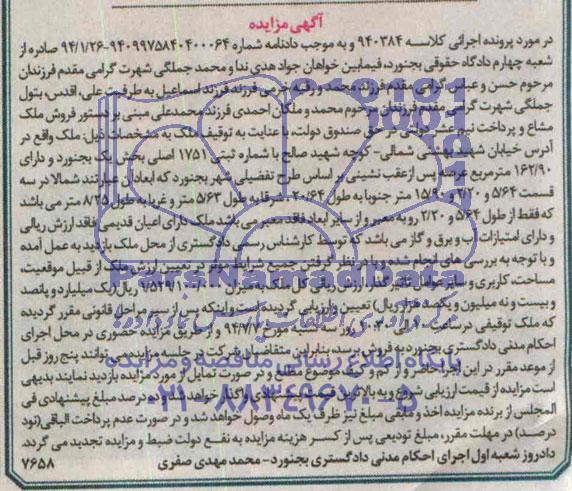 آگهی مزایده
در مورد پرونده اجرائی کلاسه ۹۴۰۳۸۴ و به موجب دادنامه شماره ۹۴۰۹۹۷۵۸۴۰۴۰۰۰۶۴-۹۴/۱/۲۶ صادره از
شعبه چهارم دادگاه حقوقی بجنورد، فیمابین خواهان جواد هدی ندا و محمد جملگی شهرت گرامی مقدم فرزندان
مرحوم حسن و عباس گرامی مقدم فرزند محمد و رقیه فرزند اسماعیل به طرفیت علی، اقدس، بتول
جملگی شهرت گرامی مقدم فرزندان مرحوم محمد و ملکان احمدی فرزند محمدعلی مبنی بر دستور فروش ملک
مشاع و پرداخت نیم عشر دولتی در حق صندوق دولت، با عنایت به توقیف ملک به مشخصات ذیل: ملک واقع در
آدرس خیابان شهید بهشتی شمالی- کوچه شهید صالح با شماره ثبتی ۱۷۵۱ اصلی بخش یک بجنورد و دارای
۱۶۲/۹۰ مترمربع عرصه پس از عقب نشینی بر اساس طرح تفضیلی شهر بجنورد که ابعاد آن عبارتند شمالا در سه
قسمت ۵/۶۴ و ۲/۲۰ و ۱۵/۹۰ متر جنوبا به طول ۲۰/۶۴، شرقا به طول ۵/۶۳ متر و غربا به طول ۸/۲۵ متر می باشد
که فقط از طول ۵/۶۴ و ۲/۲۰ رو به معبر و از سایر ابعاد فاقد معبر می باشد ملک دارای اعیان قدیمی فاقد ارزش ریالی
و دارای امتیازات آب و برق و گاز می باشد که توسط کارشناس رسمی دادگستری از محل ملک بازدید به عمل آمده
و با توجه به بررسی های انجام شده و با در نظر گرفتن جمیع شرایط موثر در تعیین ارزش ملک از قبیل موقعیت،
مساحت، کاربری و سایر عوامل تاثیرگذار، ارزش ریالی کل ملک به میزان ریال (یک میلیارد و پانصد
و بیست و نه میلیون و یکصد هزار ریال) تعیین و ارزیابی گردیده است و اینکه پس از سیر مراحل قانونی مقرر گردیده
که ملک توقیفی در ساعت ۱۰ الی روز سه شنبه مورخ ۹۴/۷/۷ و از طریق مزایده حضوری در محل اجرای
احکام مدنی دادگستری بجنورد به فروش برسد، بنابراین متقاضیان شرکت در جلسه مزایده می توانند پنج روز قبل
از موعد مقرر در این اجرا حاضر و از کم و کیف موضوع مطلع و در صورت تمایل از مورد مزایده بازدید نمایند بدیهی
است مزایده از قیمت ارزیابی شروع و به بالاترین قیمت پیشنهادی واگذار خواهد شد و ده درصد مبلغ پیشنهادی فی
المجلس از برنده مزایده اخذ و مابقی مبلغ نیز ظرف یک ماه وصول خواهد شد و در صورت عدم پرداخت الباقی (نود
درصد) در مهلت مقرر، مبلغ تودیعی پس از کسر هزینه مزایده به نفع دولت ضبط و مزایده تجدید می گردد.
دادورز شعبه اول اجرای احکام مدنی دادگستری بجنورد- محمد مهدی صفری
۷۶۵۸
ParsNamadData
پایگاه اطلاع رسانی مناقصه و مزایده
۰۲۱-۸۸۳۴۹۶۷۰-۵